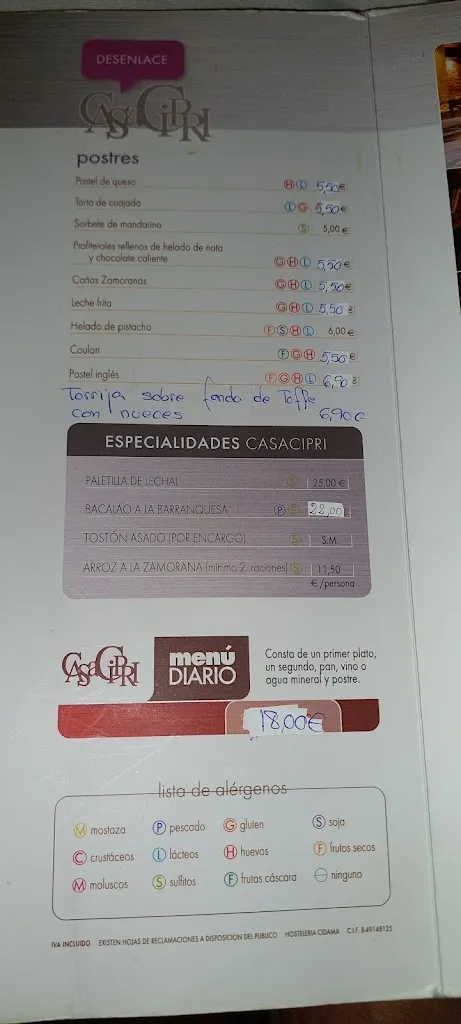 DESENLACE
CASACIPRI
postres
Pastel de queso H L 5,50€
Tarta de cuajada L G 5,50€
Sorbete de mandarina S 5,00 €
Profiteroles rellenos de helado de nata
y chocolate caliente G H L 5,50€
Cañas Zamoranas G H L 5,50€
Leche frita G H L 5,50 €
Helado de pistacho F S H L 6,00 €
Coulan F G H 5,50€
Pastel inglés F G H L 6,90 €
Torrija sobre fondo de Toffe
con nueces 6,90€
ESPECIALIDADES CASACIPRI
PALETILLA DE LECHAL S 25,00 €
BACALAO A LA BARRANQUESA P S 22,00€
TOSTÓN ASADO (POR ENCARGO) S S.M.
ARROZ A LA ZAMORANA (mínimo 2 raciones) S 11,50
€/persona
CASACIPRI
menú
DIARIO
Consta de un primer plato,
un segundo, pan, vino o
agua mineral y postre.
18,00€
lista de alérgenos
M mostaza P pescado G gluten S soja
C crustáceos L lácteos H huevos F frutos secos
M moluscos S sulfitos F frutas cáscara ninguno
IVA INCLUIDO EXISTEN HOJAS DE RECLAMACIONES A DISPOSICION DEL PUBLICO HOSTELERIA CIDAMA C.I.F. B-49148125